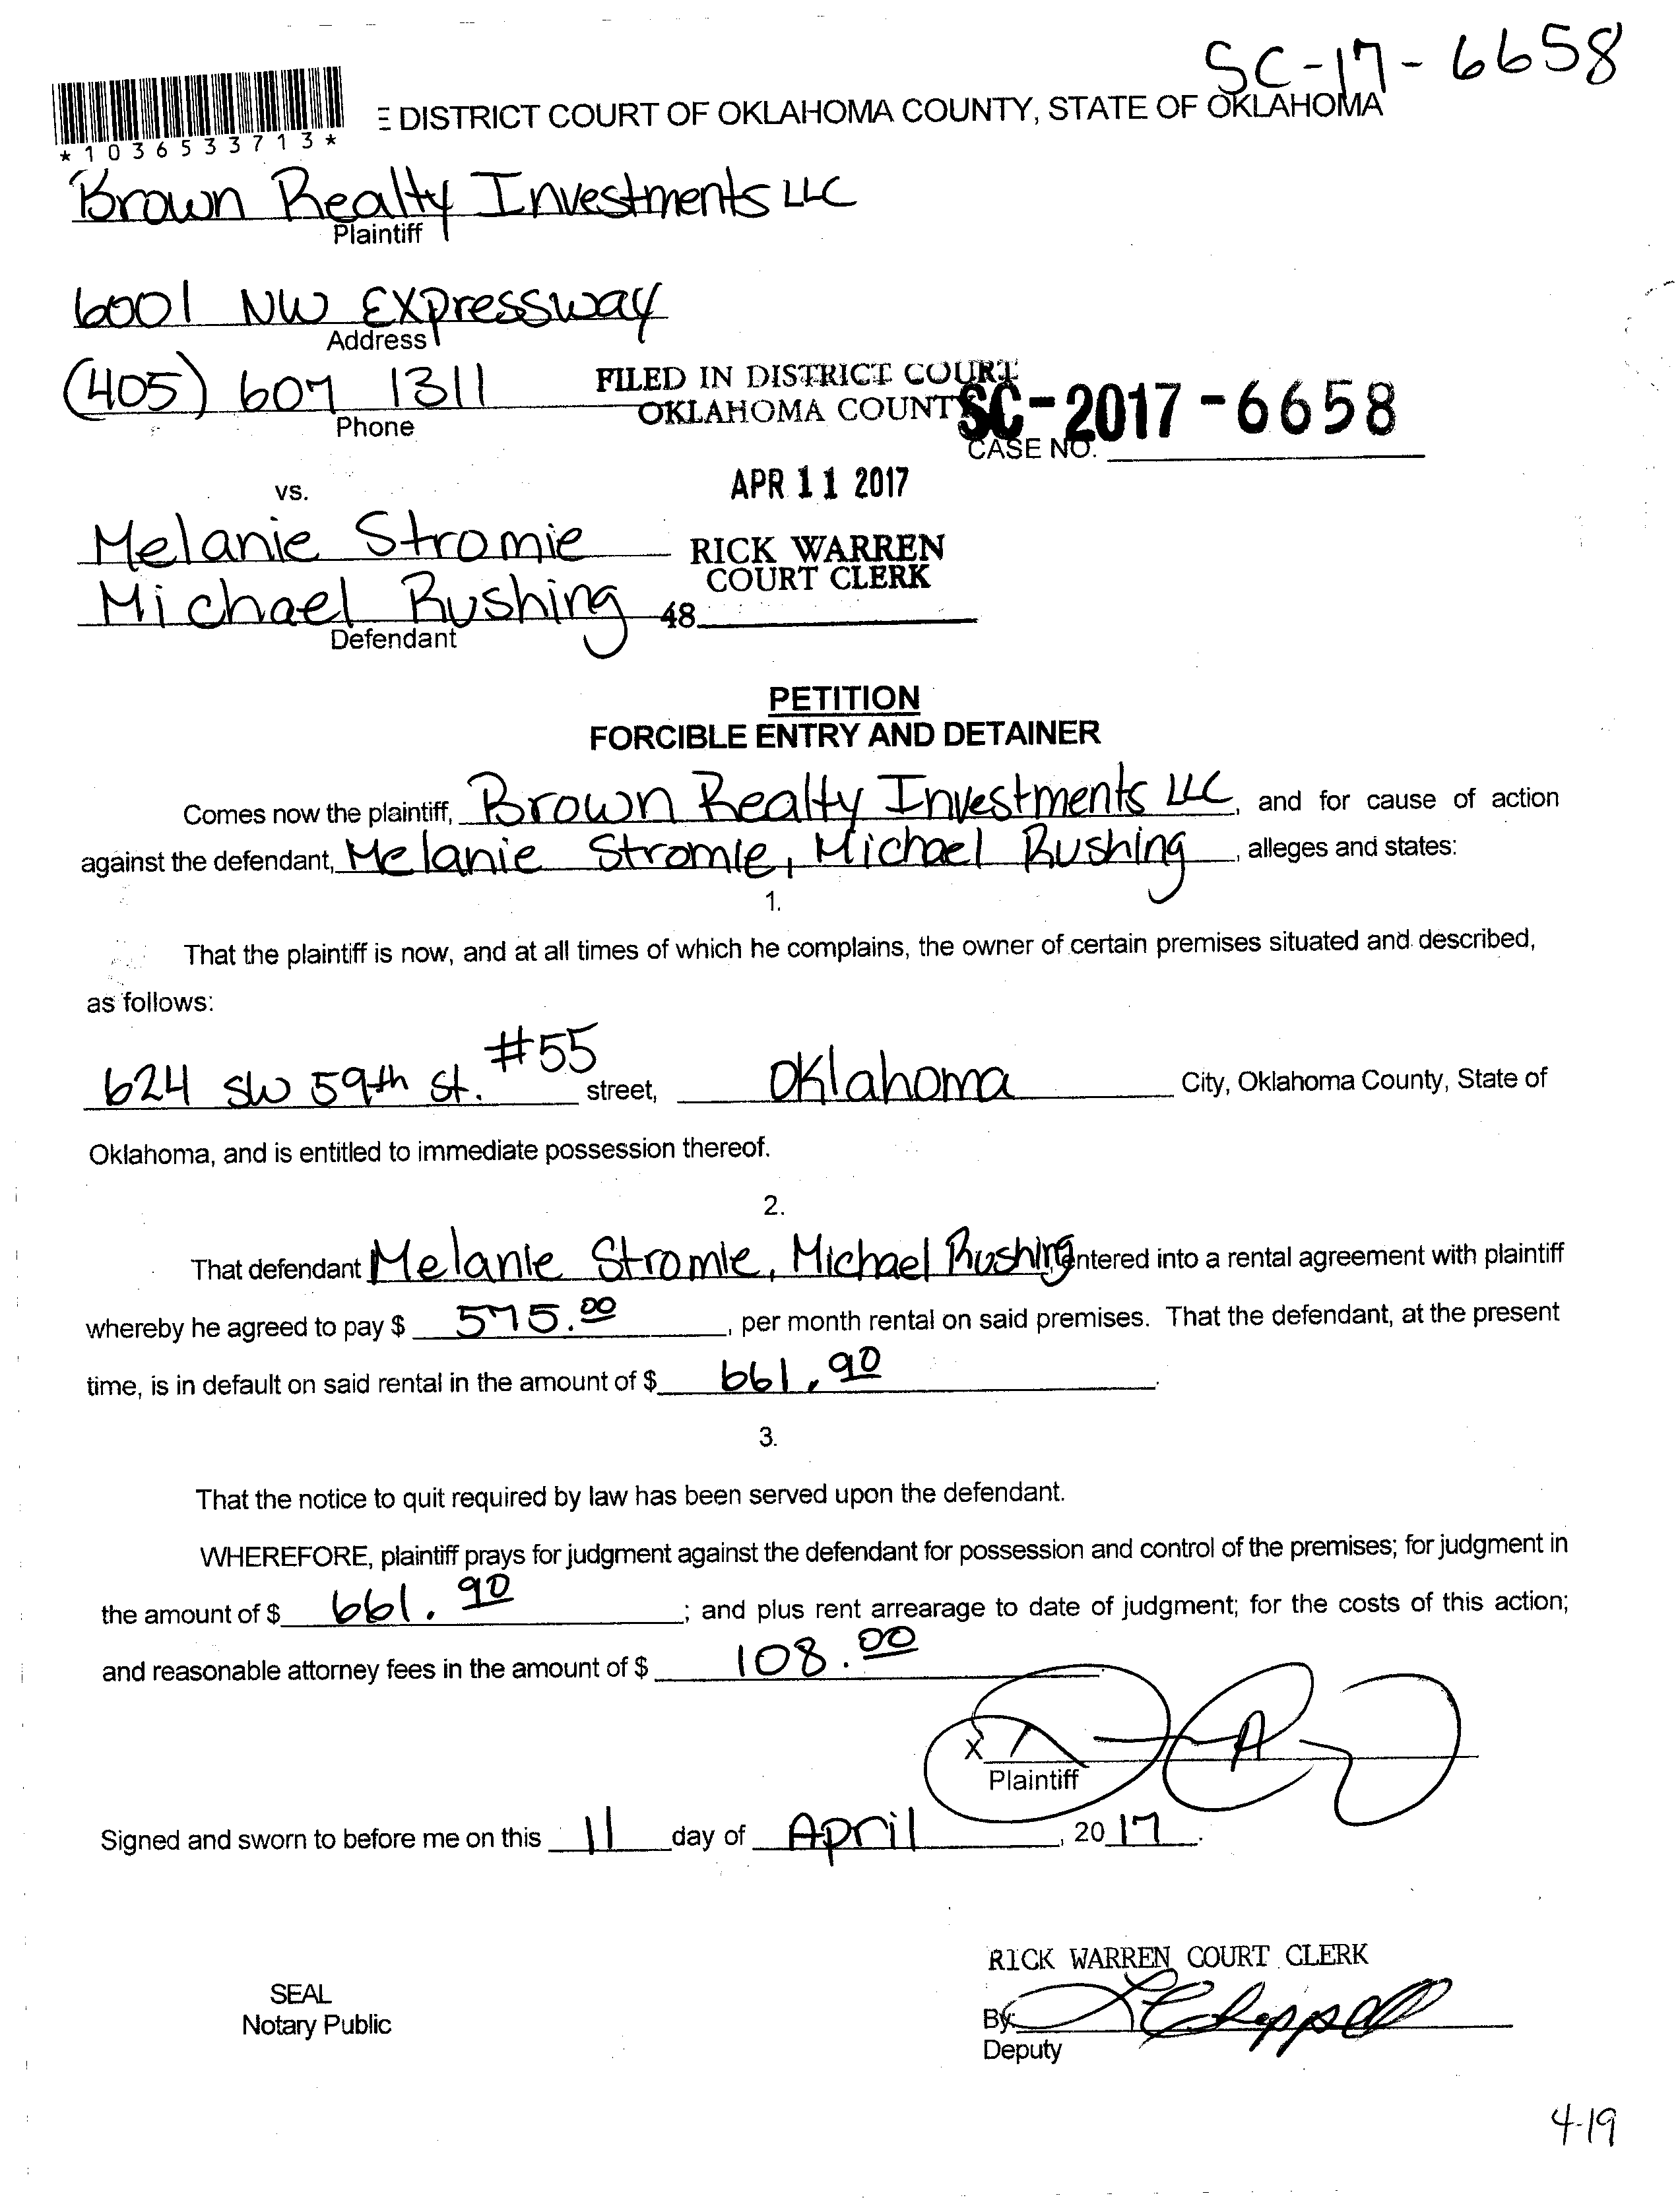 SC-17-6658
E DISTRICT COURT OF OKLAHOMA COUNTY, STATE OF OKLAHOMA
*1036533713*
Brown Realty Investments LLC
Plaintiff
6001 NW Expressway
Address
(405) 607 1311
Phone
FILED IN DISTRICT COURT
OKLAHOMA COUNTY
SC-2017-6658
CASE NO.
APR 11 2017
vs.
Melanie Stromie
RICK WARREN
COURT CLERK
Michael Rushing
48
Defendant
PETITION
FORCIBLE ENTRY AND DETAINER
Comes now the plaintiff, Brown Realty Investments LLC, and for cause of action
against the defendant, Melanie Stromie, Michael Rushing, alleges and states:
1.
That the plaintiff is now, and at all times of which he complains, the owner of certain premises situated and described,
as follows:
624 SW 59th St. #55 street, Oklahoma City, Oklahoma County, State of
Oklahoma, and is entitled to immediate possession thereof.
2.
That defendant Melanie Stromie, Michael Rushing, entered into a rental agreement with plaintiff
whereby he agreed to pay $ 575.00, per month rental on said premises. That the defendant, at the present
time, is in default on said rental in the amount of $ 661.90.
3.
That the notice to quit required by law has been served upon the defendant.
WHEREFORE, plaintiff prays for judgment against the defendant for possession and control of the premises; for judgment in
the amount of $ 661.90; and plus rent arrearage to date of judgment; for the costs of this action;
and reasonable attorney fees in the amount of $ 108.00
X
Plaintiff
Signed and sworn to before me on this 11 day of April, 2017.
RICK WARREN COURT CLERK
SEAL
Notary Public
By:
Deputy
4-19